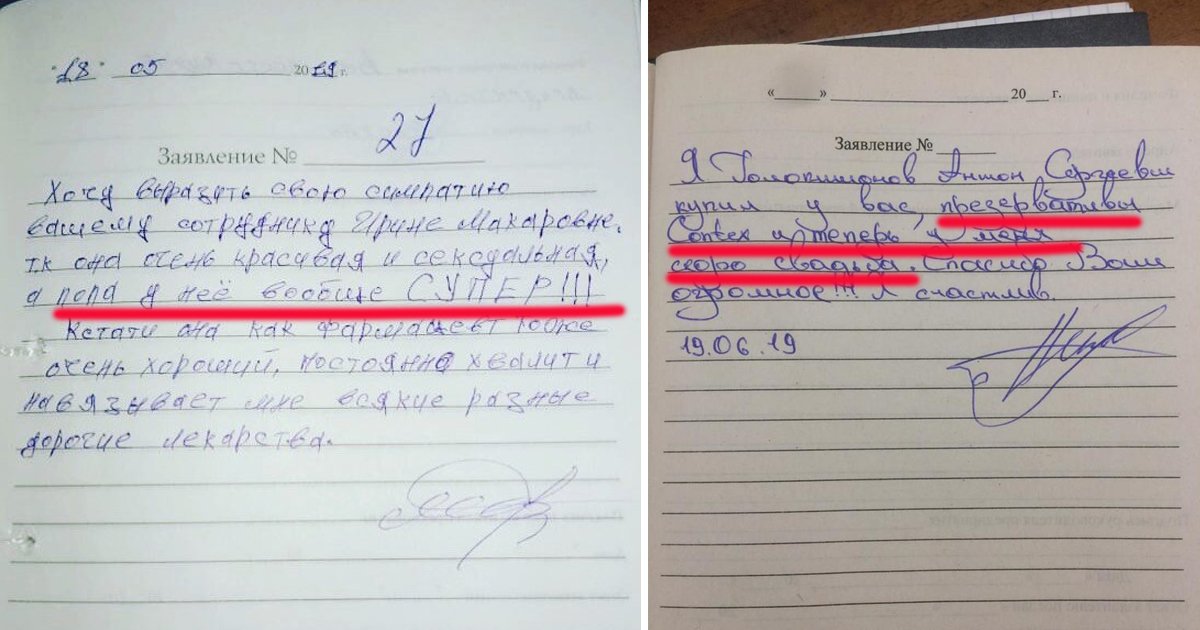 "18" 05 2019 г.
27
Заявление №
Хочу выразить свою симпатию
вашему сотруднику Ирине Макаровне,
т.к она очень красивая и сексуальная,
а попа у неё вообще СУПЕР!!!
Кстати она как фармацевт тоже
очень хороший, постоянно хвалит и
навязывает мне всякие разные
дорогие лекарства.
« » 20 г.
Заявление №
Я Антон Сергеевич
купил у вас, презервативы
Contex и теперь у меня
скоро свадьба. Спасибо Вам
огромное!!! Я счастлив.
19.06.19